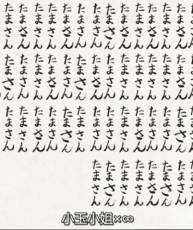 たまさん たまさん たまさん たまさん たまさん たまさん たまさん たまさん たまさん たまさん たまさん たまさん たまさん
たまさん たまさん たまさん たまさん たまさん たまさん たまさん たまさん たまさん たまさん たまさん たまさん たまさん
たまさん たまさん たまさん たまさん たまさん たまさん たまさん たまさん たまさん たまさん たまさん たまさん たまさん
たまさん たまさん たまさん たまさん たまさん たまさん たまさん
小玉小姐×∞